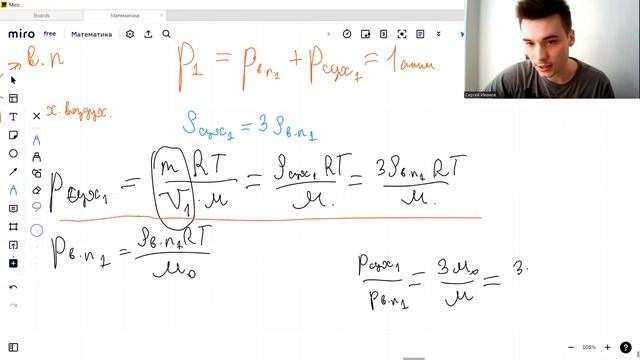 Miro
Boards
Математика
miro free Математика
Сергей Иванов
в.п
P₁ = Pв.п₁ + Pсух₁ = 1 атм.
х. воздух.
ρсух₁ = 3ρв.п₁
Pсух₁ = m RT / V₁·μ = ρсух₁ RT / μ. = 3ρв.п₁ RT / μ.
Pв.п₁ = ρв.п₁ RT / μ₀
Pсух₁ / Pв.п₁ = 3μ₀ / μ = 3.
105%